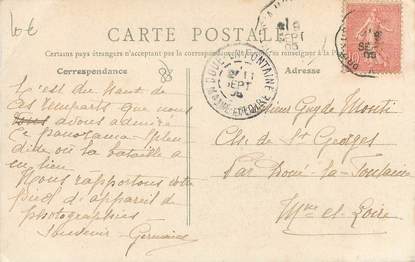 10€
CARTE POSTALE
Certains pays étrangers n'acceptant pas la correspondance
Correspondance
88
Adresse
DOUÉ-LA-FONTAINE
11
SEPT
05
MAINE-ET-LOIRE
C'est du haut de
ces remparts que nous
avons admiré
ce panorama splen
dide où la bataille a
eu lieu
Nous rapportons votre
pied d'appareil de
photographies
Souvenir Germaine
Monsieur Guy de Monti
Ch. de St Georges
Par Doué-la-Fontaine
Mne et Loire